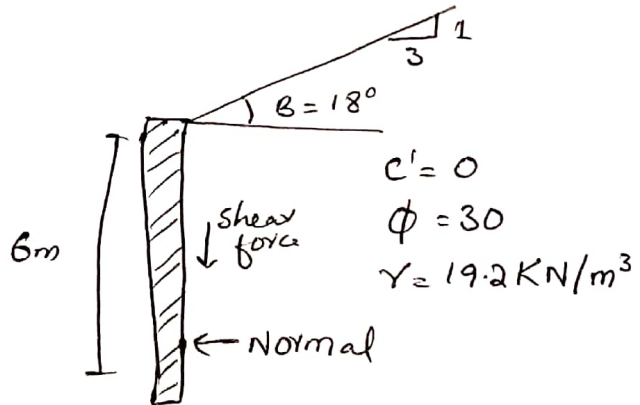 1
3
B = 18°
C' = 0
ϕ = 30
γ = 19.2 KN/m³
6m
shear
force
Normal